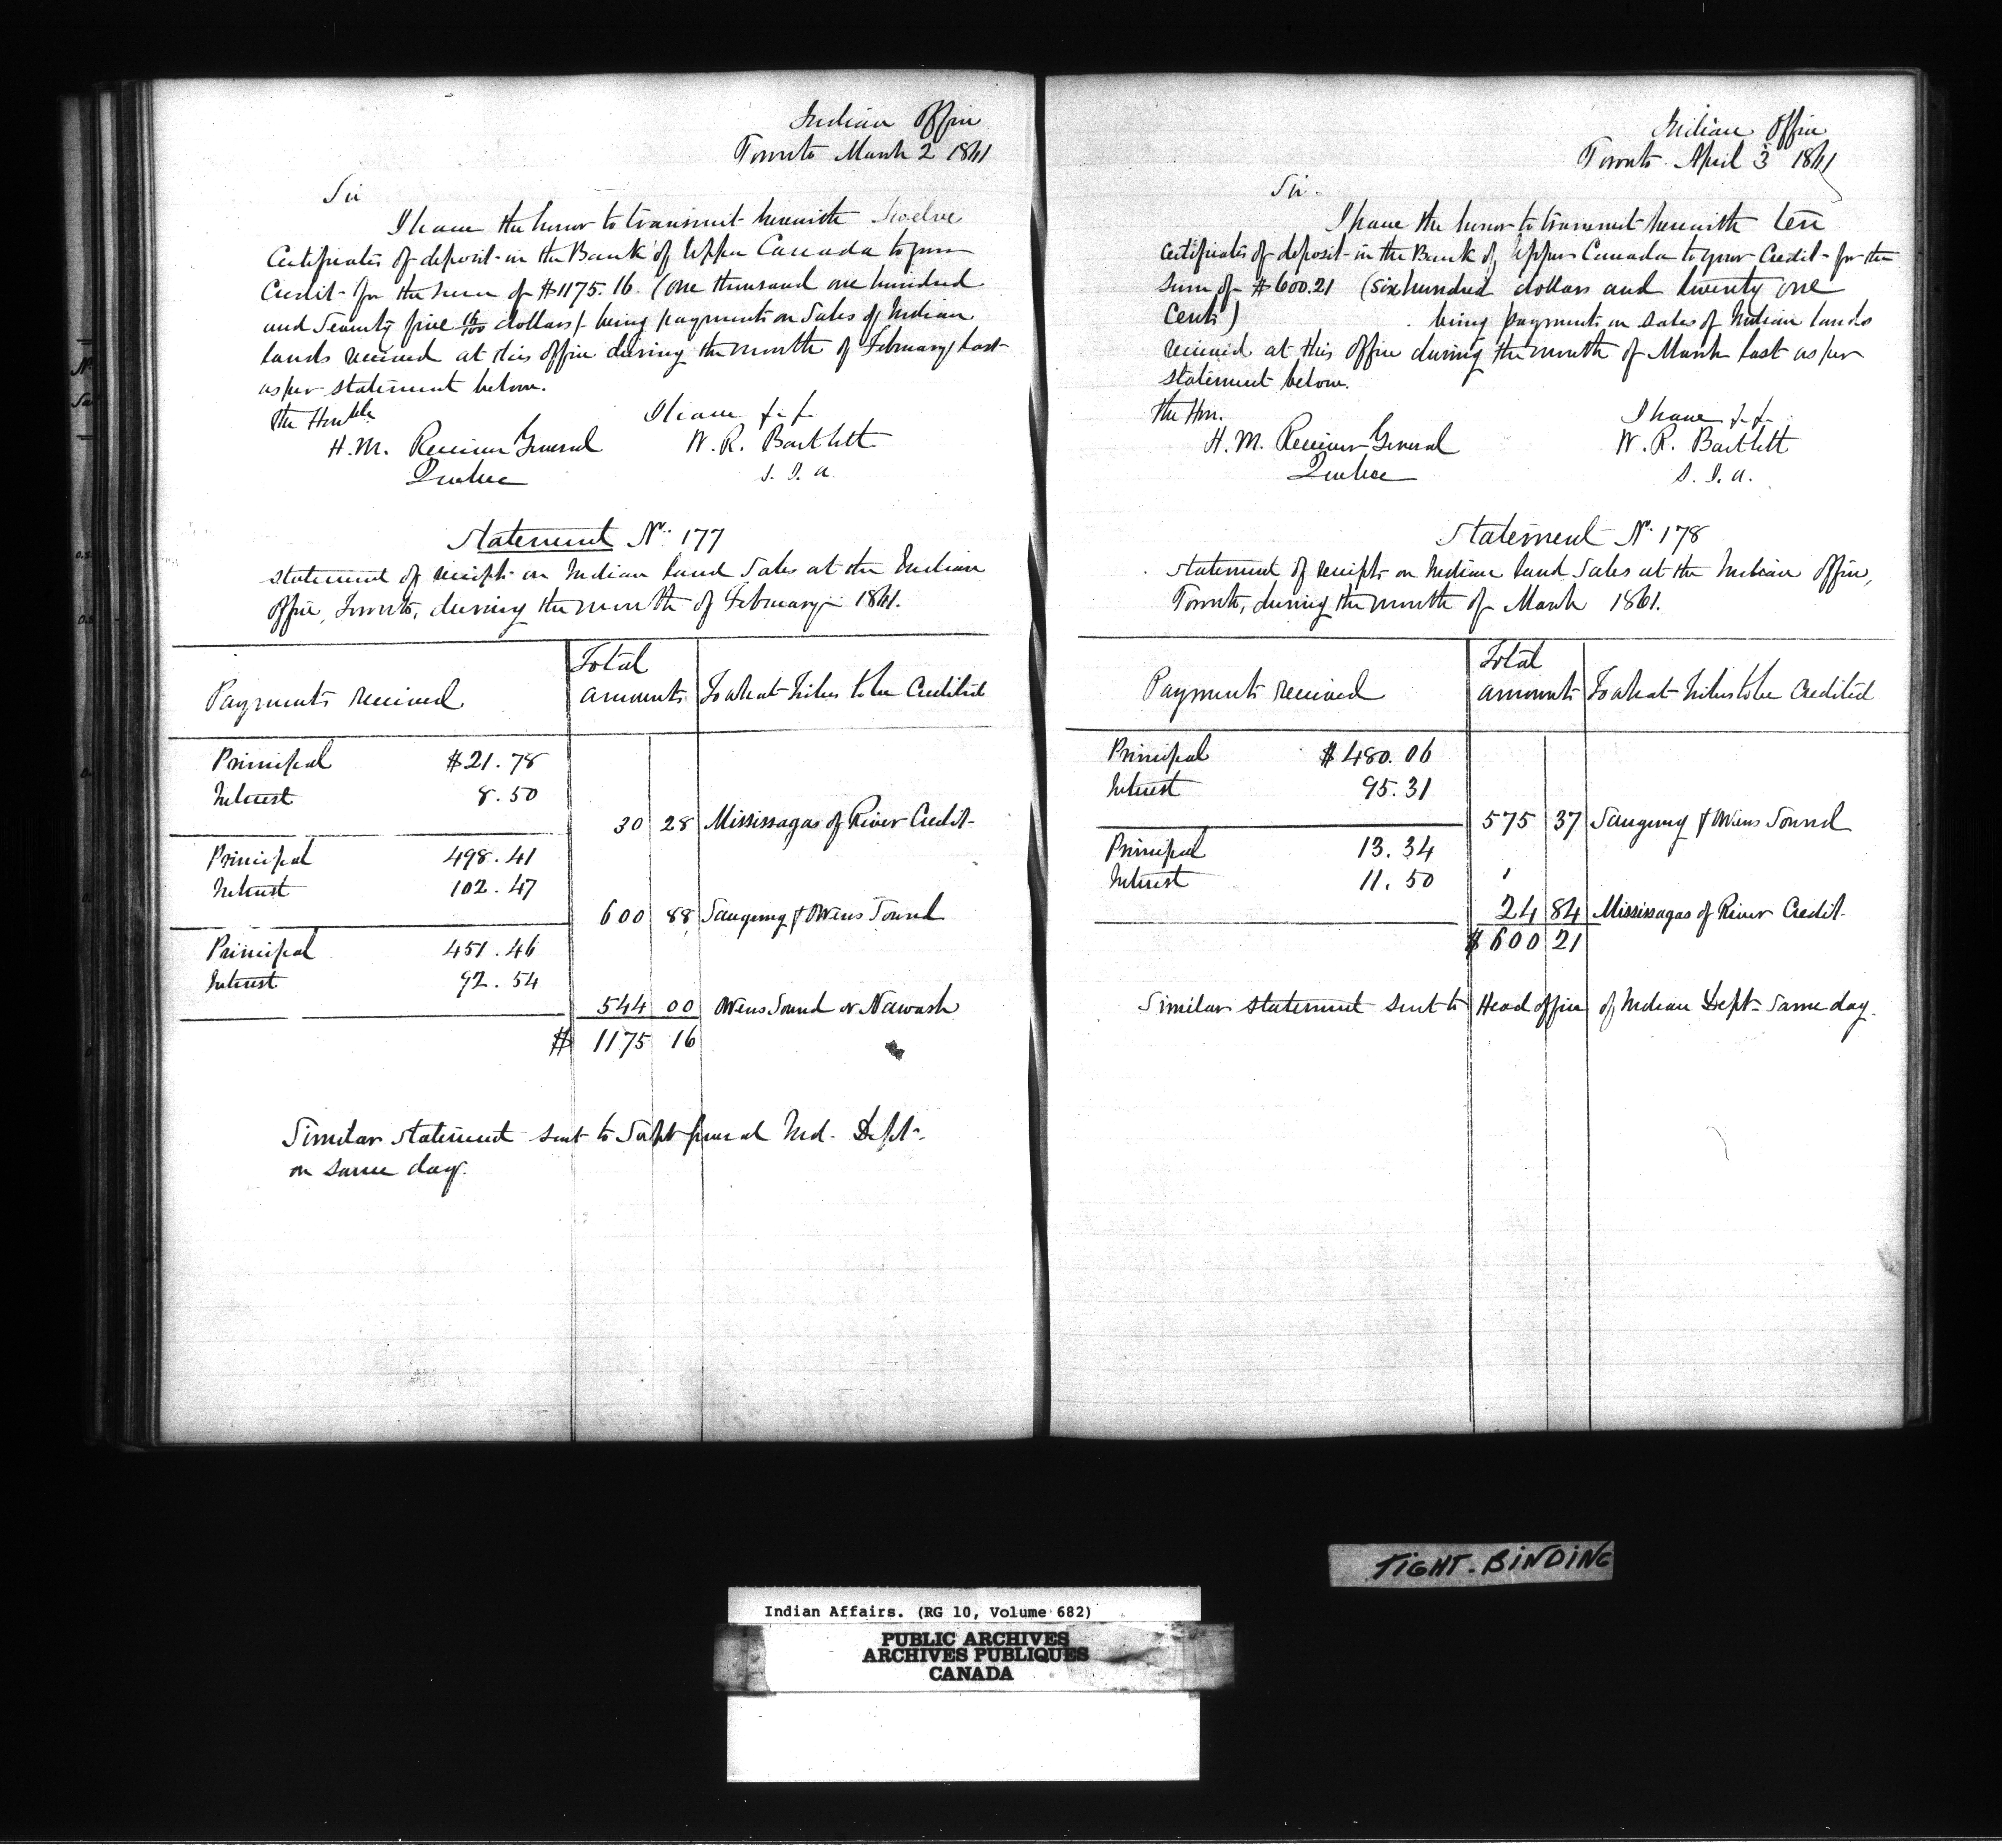 Indian Office
Toronto March 2 1861
Sir
I have the honor to transmit herewith twelve
Certificates of deposit in the Bank of Upper Canada to your
Credit for the sum of $1175.16 (one thousand one hundred
and Seventy five 16/100 dollars) being payments on Sales of Indian
lands received at this office during the month of February last
as per statement below.
The Honble
I have &.&.
H. M. Receiver General
W. R. Bartlett
Quebec
S. I. A.
Statement No. 177
Statement of receipts on Indian land Sales at the Indian
Office, Toronto, during the month of February 1861.
Payments received
Total
amounts
To what Tribes to be Credited
Principal $21.78
Interest 8.50
30 28 Mississagas of River Credit
Principal 498.41
Interest 102.47
600 88 Saugeeng & Owens Sound
Principal 451.46
Interest 92.54
544 00 Owens Sound or Nawash
$ 1175 16
Similar statement sent to Supt General Ind. Dept.
on same day.
Indian Office
Toronto April 3 1861
Sir.
I have the honor to transmit herewith ten
Certificates of deposit in the Bank of Upper Canada to your Credit for the
sum of $600.21 (six hundred dollars and twenty one
Cents) being payments on sales of Indian lands
received at this office during the month of March last as per
statement below.
The Hon.
I have &.&.
H. M. Receiver General
W. R. Bartlett
Quebec
S. I. A.
Statement No. 178
Statement of receipts on Indian land Sales at the Indian Office,
Toronto, during the month of March 1861.
Payments received
Total
amounts
To what Tribes to be Credited
Principal $480.06
Interest 95.31
575 37 Saugeeng & Owens Sound
Principal 13.34
Interest 11.50
24 84 Mississagas of River Credit
$ 600 21
Similar statement sent to Head office of Indian Dept same day.
TIGHT. BINDING
Indian Affairs. (RG 10, Volume 682)
PUBLIC ARCHIVES
ARCHIVES PUBLIQUES
CANADA